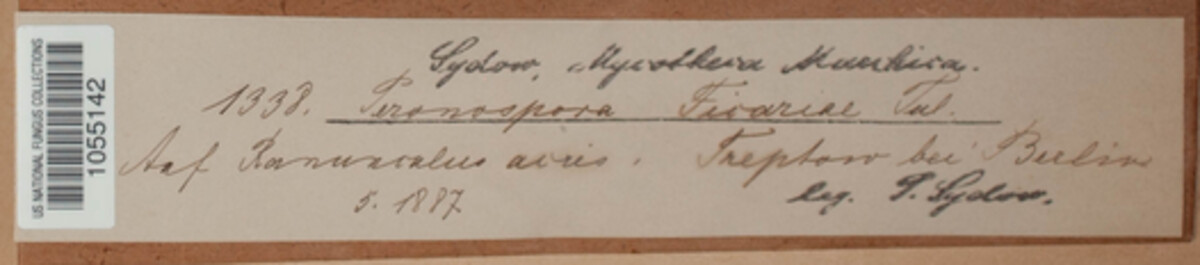 US NATIONAL FUNGUS COLLECTIONS
1055142
Sydow, Mycotheca Marchica.
1338. Peronospora Ficariae Tul.
Auf Ranunculus acris. Treptow bei Berlin
5. 1887
leg. P. Sydow.